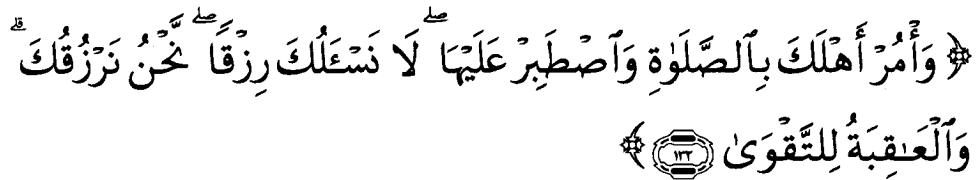 ﴿ وَأۡمُرۡ أَهۡلَكَ بِٱلصَّلَوٰةِ وَٱصۡطَبِرۡ عَلَيۡهَاۖ لَا نَسۡـَٔلُكَ رِزۡقٗاۖ نَّحۡنُ نَرۡزُقُكَۗ
وَٱلۡعَٰقِبَةُ لِلتَّقۡوَىٰ ١٣٢ ﴾